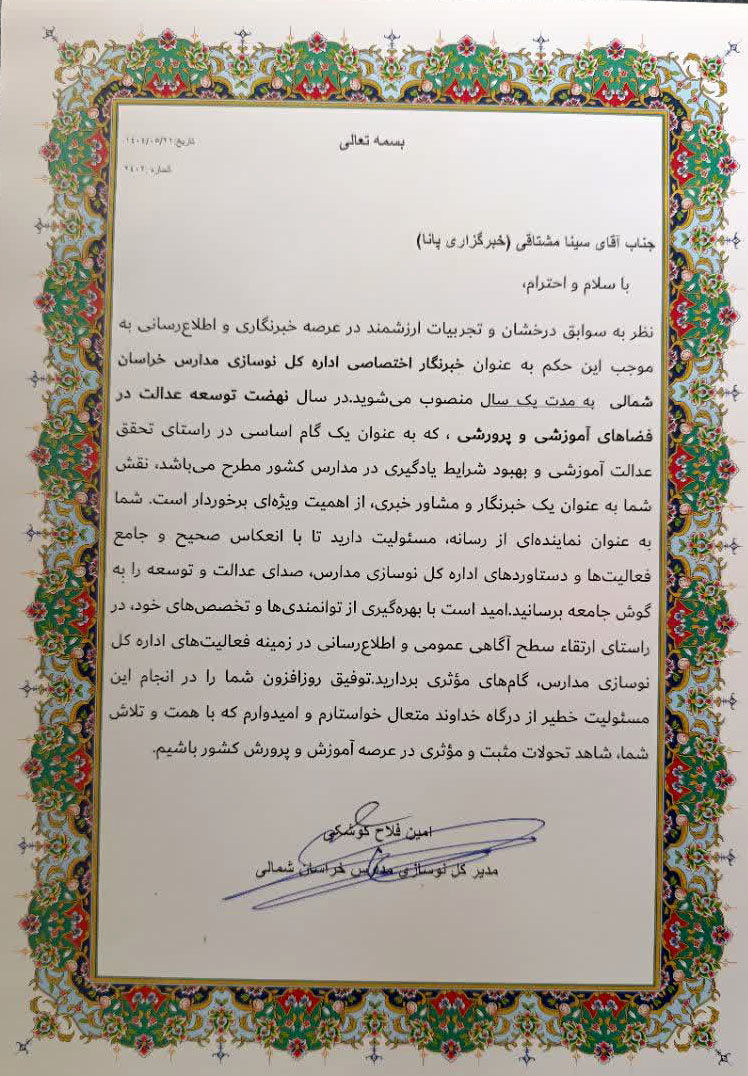 بسمه تعالی
تاریخ: ۱۴۰۴/۰۵/۲۲
شماره: ۲۴۰۲
جناب آقای سینا مشتاقی (خبرگزاری پانا)
با سلام و احترام،
نظر به سوابق درخشان و تجربیات ارزشمند در عرصه خبرنگاری و اطلاع‌رسانی به
موجب این حکم به عنوان خبرنگار اختصاصی اداره کل نوسازی مدارس خراسان
شمالی به مدت یک سال منصوب می‌شوید.در سال نهضت توسعه عدالت در
فضاهای آموزشی و پرورشی ، که به عنوان یک گام اساسی در راستای تحقق
عدالت آموزشی و بهبود شرایط یادگیری در مدارس کشور مطرح می‌باشد، نقش
شما به عنوان یک خبرنگار و مشاور خبری، از اهمیت ویژه‌ای برخوردار است. شما
به عنوان نماینده‌ای از رسانه، مسئولیت دارید تا با انعکاس صحیح و جامع
فعالیت‌ها و دستاوردهای اداره کل نوسازی مدارس، صدای عدالت و توسعه را به
گوش جامعه برسانید.امید است با بهره‌گیری از توانمندی‌ها و تخصص‌های خود، در
راستای ارتقاء سطح آگاهی عمومی و اطلاع‌رسانی در زمینه فعالیت‌های اداره کل
نوسازی مدارس، گام‌های مؤثری بردارید.توفیق روزافزون شما را در انجام این
مسئولیت خطیر از درگاه خداوند متعال خواستارم و امیدوارم که با همت و تلاش
شما، شاهد تحولات مثبت و مؤثری در عرصه آموزش و پرورش کشور باشیم.
امین فلاح کوشکی
مدیر کل نوسازی مدارس خراسان شمالی